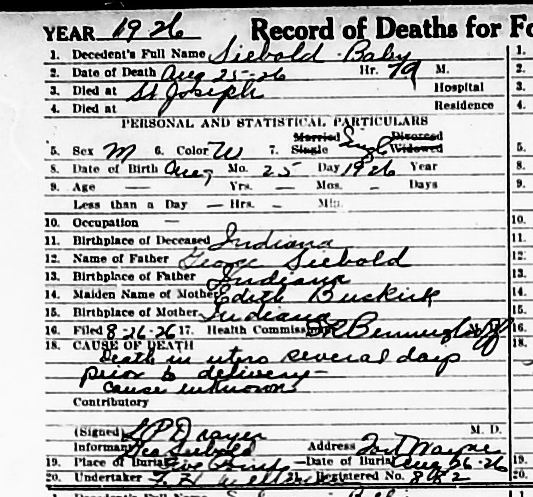 YEAR 1926 Record of Deaths for Fo
1. Decedent's Full Name Siebold Baby
2. Date of Death Aug 25-26 Hr. 7 A M.
3. Died at St Joseph Hospital
4. Died at Residence
PERSONAL AND STATISTICAL PARTICULARS
Married Divorced
5. Sex M 6. Color W 7. Single Sing Widowed
8. Date of Birth Aug Mo. 25 Day 1926 Year
9. Age — Yrs. — Mos. — Days
Less than a Day — Hrs. — Min.
10. Occupation —
11. Birthplace of Deceased Indiana
12. Name of Father George Siebold
13. Birthplace of Father Indiana
14. Maiden Name of Mother Edith Buskirk
15. Birthplace of Mother Indiana
16. Filed 8-26-26 17. Health Commiss
18. CAUSE OF DEATH
Death in utero several days
prior to delivery—
cause unknown
Contributory
(Signed) M. D.
Informant Geo Siebold Address Fort Wayne
19. Place of Burial —Date of Burial Aug 26-26
20. Undertaker 21. Registered No. 882